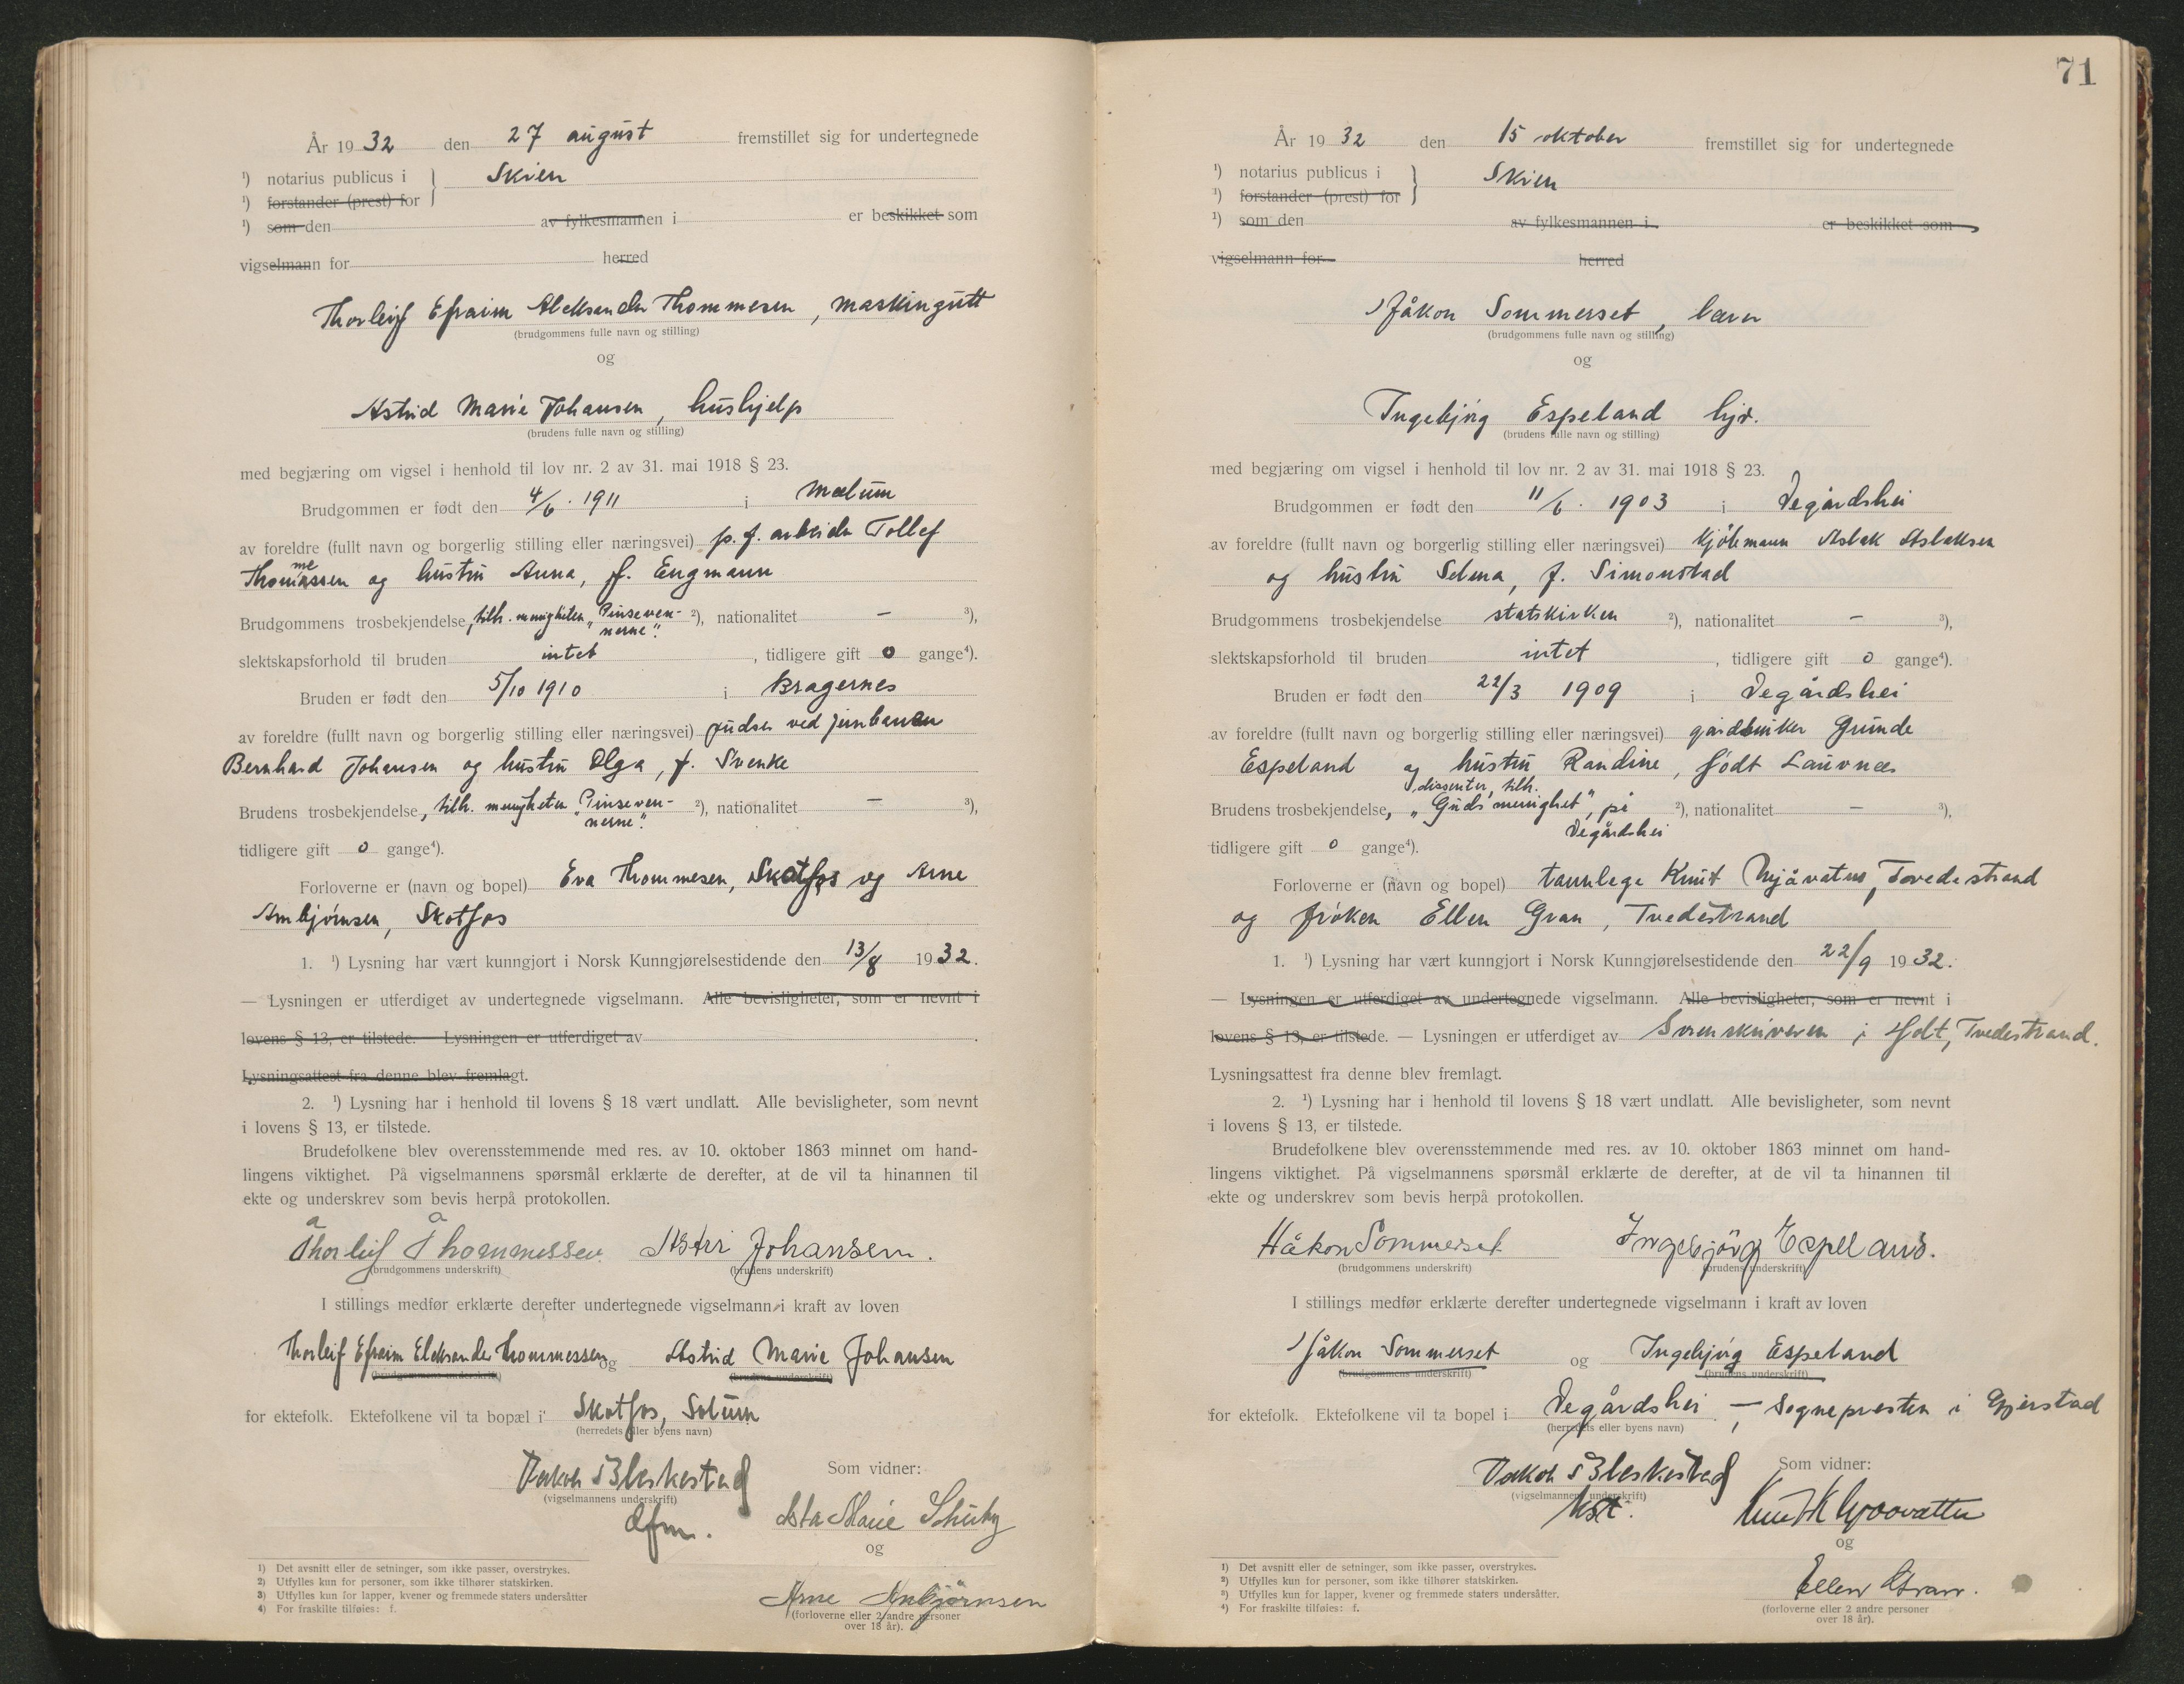 År 1932 den 27 august fremstillet sig for undertegnede
¹) notarius publicus i } Skien
¹) forstander (prest) for
¹) som den av fylkesmannen i er beskikket som
vigselmann for herred
Thorleif Efraim Aleksander Thommesen, maskingutt
(brudgommens fulle navn og stilling)
og
Astrid Marie Johansen, hushjelp
(brudens fulle navn og stilling)
med begjæring om vigsel i henhold til lov nr. 2 av 31. mai 1918 § 23.
Brudgommen er født den 4/6. 1911 i Mælum
av foreldre (fullt navn og borgerlig stilling eller næringsvei) p. f. arbeider Tollef
me
Thomassen og hustru Anna, f. Engmann
Brudgommens trosbekjendelse, tilh. menigheten „Pinseven- ²), nationalitet — ³),
nerne".
slektskapsforhold til bruden intet, tidligere gift 0 gange⁴).
Bruden er født den 5/10 1910 i Bragernes
av foreldre (fullt navn og borgerlig stilling eller næringsvei) pudser ved jernbanen
Bernhard Johansen og hustru Olga, f. Svenke
Brudens trosbekjendelse, tilh. menigheten „Pinseven- ²), nationalitet — ³),
nerne".
tidligere gift 0 gange⁴).
Forloverne er (navn og bopel) Eva Thommesen, Skotfos og Arne
Arnbjørnsen, Skotfos
1. ¹) Lysning har vært kunngjort i Norsk Kunngjørelsestidende den 13/8 1932.
— Lysningen er utferdiget av undertegnede vigselmann. Alle bevisligheter, som er nevnt i
lovens § 13, er tilstede. — Lysningen er utferdiget av .
Lysningsattest fra denne blev fremlagt.
2. ¹) Lysning har i henhold til lovens § 18 vært undlatt. Alle bevisligheter, som nevnt
i lovens § 13, er tilstede.
Brudefolkene blev overensstemmende med res. av 10. oktober 1863 minnet om hand-
lingens viktighet. På vigselmannens spørsmål erklærte de derefter, at de vil ta hinannen til
ekte og underskrev som bevis herpå protokollen.
Thorleif Thommessen Astri Johansen.
(brudgommens underskrift) (brudens underskrift)
I stillings medfør erklærte derefter undertegnede vigselmann i kraft av loven
Thorleif Efraim Eleksander Thommessen og Astrid Marie Johansen
(brudgommens underskrift) (brudens underskrift)
for ektefolk. Ektefolkene vil ta bopæl i Skotfos, Solum
(herredets eller byens navn)
Jakob Bleskestad Som vidner:
(vigselmannens underskrift)
dfm. Asta Marie
og
Arne Arnbjørnsen
(forloverne eller 2 andre personer
over 18 år).
1) Det avsnitt eller de setninger, som ikke passer, overstrykes.
2) Utfylles kun for personer, som ikke tilhører statskirken.
3) Utfylles kun for lapper, kvener og fremmede staters undersåtter
4) For fraskilte tilføies: f.
71
År 1932 den 15 oktober fremstillet sig for undertegnede
¹) notarius publicus i } Skien
¹) forstander (prest) for
¹) som den av fylkesmannen i er beskikket som
vigselmann for herred
Håkon Sommerset, lærer
(brudgommens fulle navn og stilling)
og
Ingebjørg Espeland hjv.
(brudens fulle navn og stilling)
med begjæring om vigsel i henhold til lov nr. 2 av 31. mai 1918 § 23.
Brudgommen er født den 11/6. 1903 i Vegårdshei
av foreldre (fullt navn og borgerlig stilling eller næringsvei) kjøbmann Aslak Aslaksen
og hustru Selma, f. Simonstad
Brudgommens trosbekjendelse statskirken ²), nationalitet — ³),
slektskapsforhold til bruden intet, tidligere gift 0 gange⁴).
Bruden er født den 22/3 1909 i Vegårdshei
av foreldre (fullt navn og borgerlig stilling eller næringsvei) gårdbruker Grunde
Espeland og hustru Randine, født Lauvnes
dissenter, tilh.
Brudens trosbekjendelse, „Guds menighet", på ²), nationalitet — ³),
Vegårdshei
tidligere gift 0 gange⁴).
Forloverne er (navn og bopel) tannlege Knut Mjåvatn, Tvedestrand
og frøken Ellen Gran, Tvedestrand
1. ¹) Lysning har vært kunngjort i Norsk Kunngjørelsestidende den 22/9 1932.
— Lysningen er utferdiget av undertegnede vigselmann. Alle bevisligheter, som er nevnt i
lovens § 13, er tilstede. — Lysningen er utferdiget av Sorenskriveren i Holt, Tvedestrand.
Lysningsattest fra denne blev fremlagt.
2. ¹) Lysning har i henhold til lovens § 18 vært undlatt. Alle bevisligheter, som nevnt
i lovens § 13, er tilstede.
Brudefolkene blev overensstemmende med res. av 10. oktober 1863 minnet om hand-
lingens viktighet. På vigselmannens spørsmål erklærte de derefter, at de vil ta hinannen til
ekte og underskrev som bevis herpå protokollen.
Håkon Sommerset Ingebjørg Espeland.
(brudgommens underskrift) (brudens underskrift)
I stillings medfør erklærte derefter undertegnede vigselmann i kraft av loven
Håkon Sommerset og Ingebjørg Espeland
(brudgommens underskrift) (brudens underskrift)
for ektefolk. Ektefolkene vil ta bopel i Vegårdshei — Sognepresten i Gjerstad
(herredets eller byens navn)
Jakob Bleskestad Som vidner:
(vigselmannens underskrift)
kst. Knut
og
Ellen Gran.
(forloverne eller 2 andre personer
over 18 år).
1) Det avsnitt eller de setninger, som ikke passer, overstrykes.
2) Utfylles kun for personer, som ikke tilhører statskirken.
3) Utfylles kun for lapper, kvener og fremmede staters undersåtter.
4) For fraskilte tilføies: f.